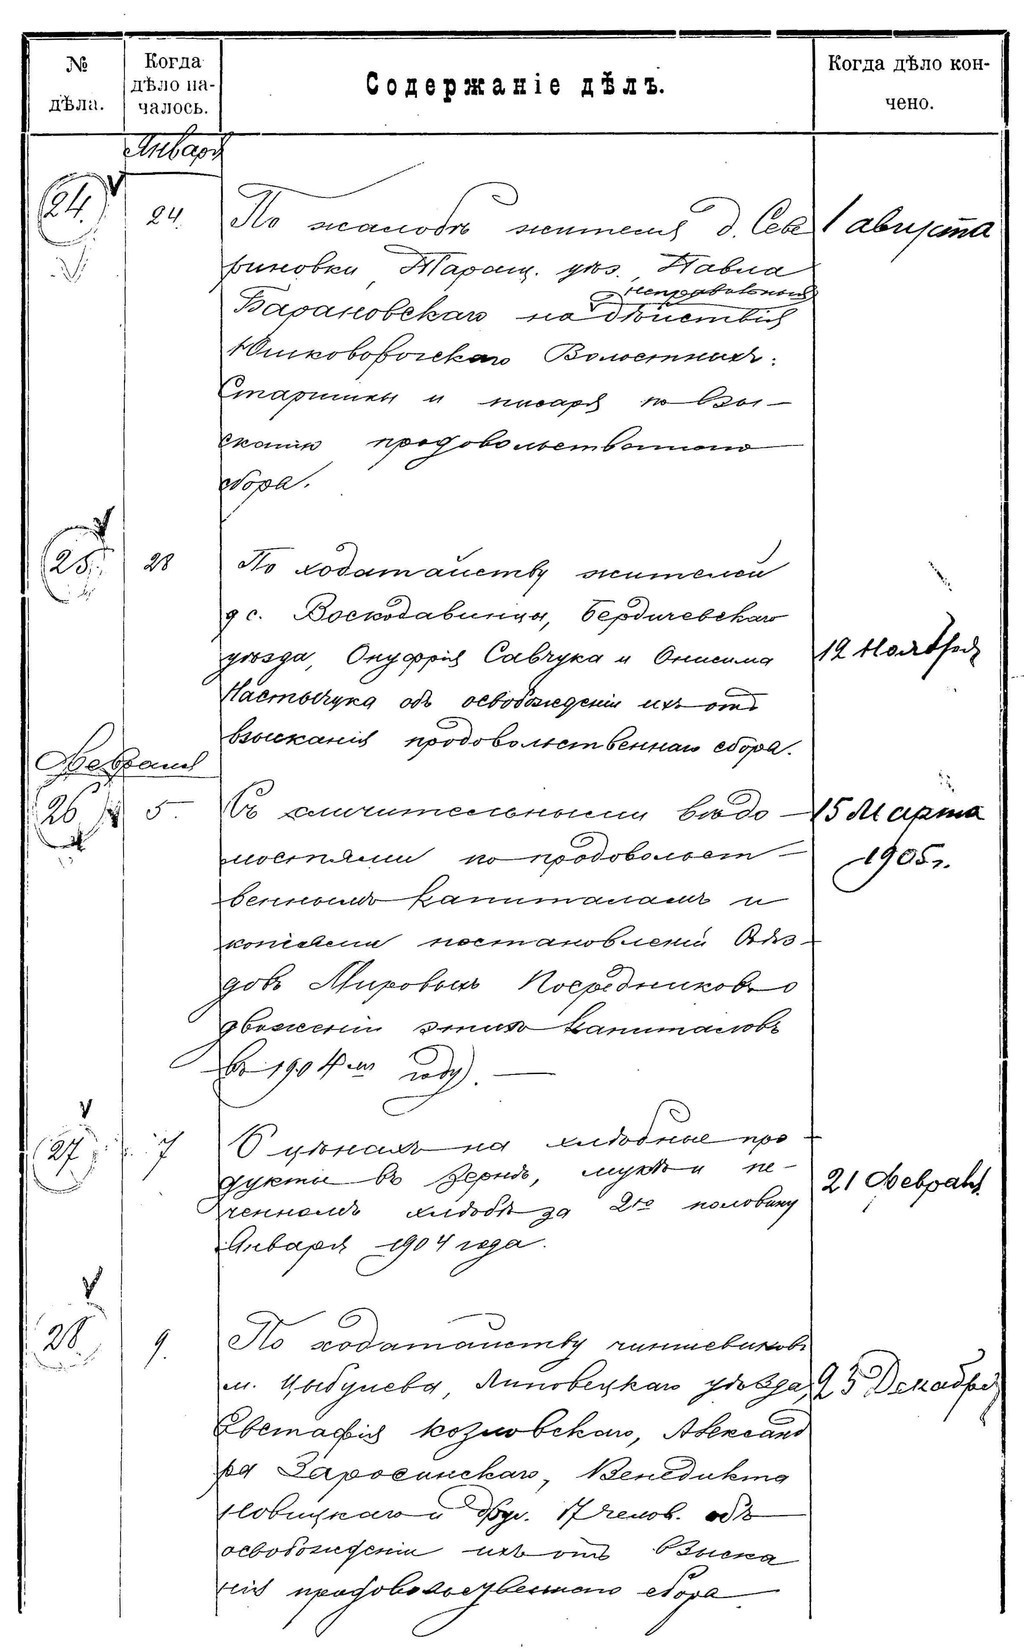 № дѣла.
Когда дѣло началось.
Содержаніе дѣлъ.
Когда дѣло кончено.
Января
24. 24. По жалобѣ жителя д. Севе 1 августа
риновки, Таращ. уѣз. Павла
неправильныя
Барановскаго на дѣйствія
Волостныхъ:
Старшины и писаря по взы-
сканію продовольственнаго
сбора.
25. 28 По ходатайству жителей
с. Воскодавинцы, Бердичевскаго
уѣзда, Онуфрія Савчука и Онисима 12 Ноября
Настычука объ освобожденіи ихъ отъ
взысканія продовольственнаго сбора.
Февраля
26 5. Съ отличительными вѣдо- 15 Марта
мостями по продовольст- 1905 г.
веннымъ капиталамъ и
копіями постановленій Съѣз-
довъ Мировыхъ Посредниковъ о
движеніи этихъ капиталовъ
въ 1904-мъ году). —
27 7 О цѣнахъ на хлѣбные про-
дукты въ зернѣ, мукѣ и пе- 21 Февраля
ченномъ хлѣбѣ за 2-ю половину
Января 1904 года.
28 9. По ходатайству чиншевиковъ
м. Цыбулева, Липовецкаго уѣзда, 23 Декабря
Евстафія Козловскаго, Александ
ра Заросинскаго, Венедикта
Новицкаго и друг. 17 челов. объ
освобожденіи ихъ отъ взыска
нія продовольственнаго сбора.